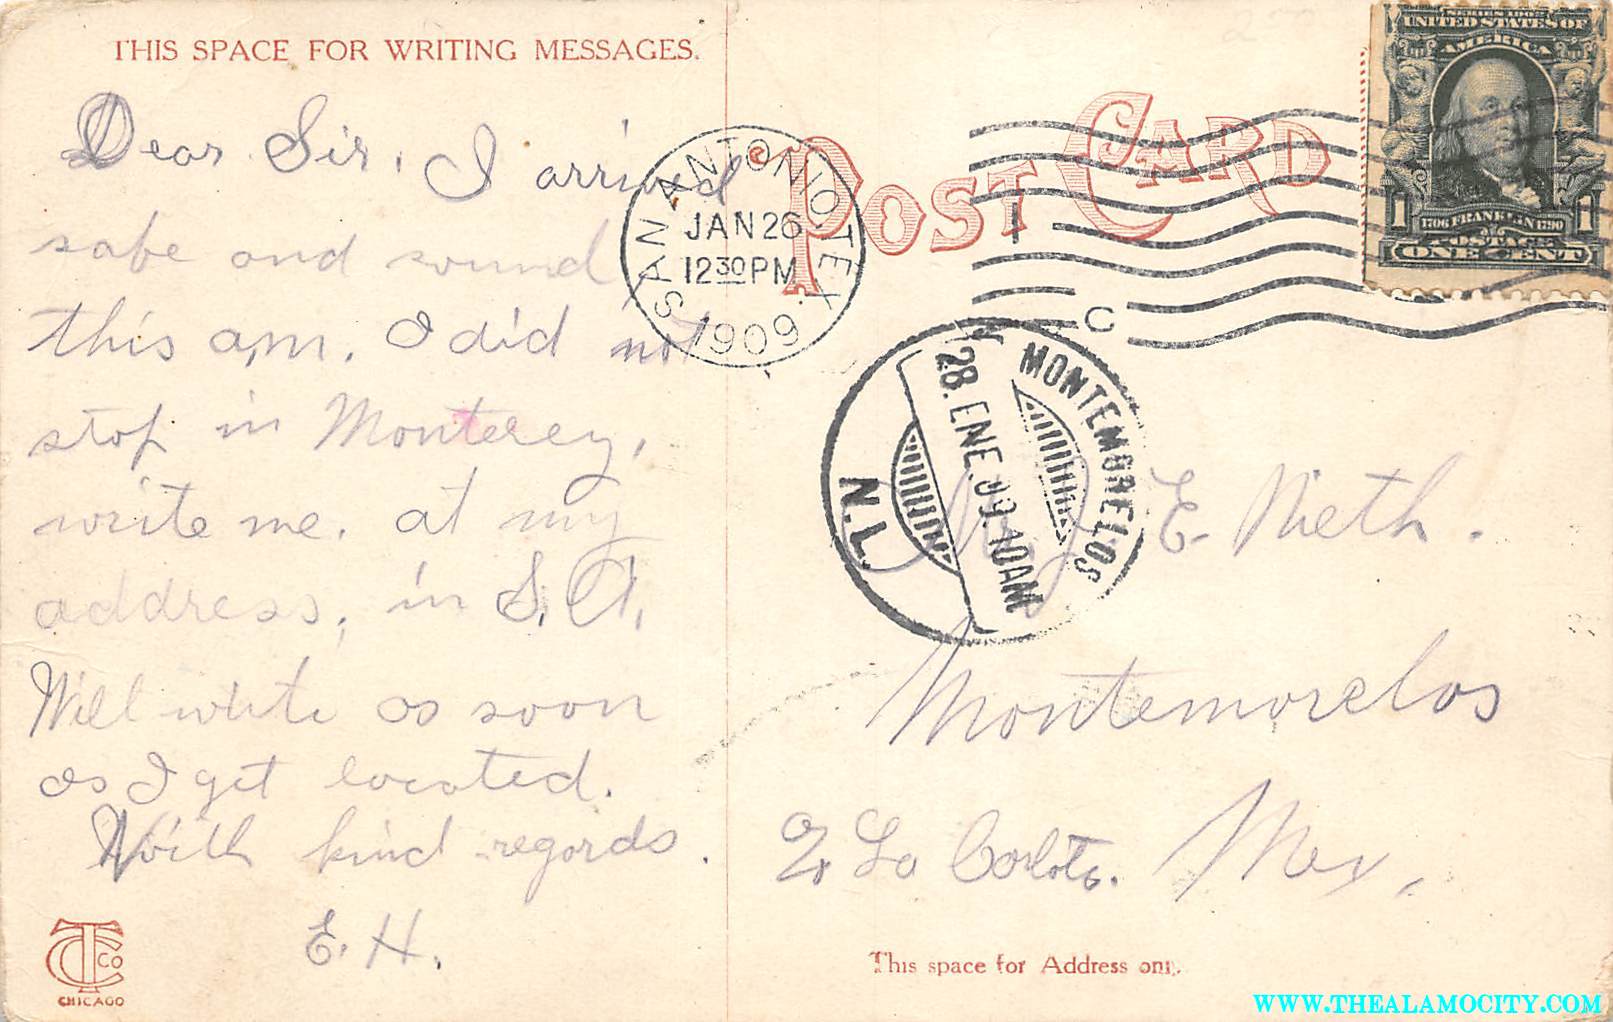 THIS SPACE FOR WRITING MESSAGES.
Dear Sir, I arrived
safe and sound
this a,m, I did not
stop in Monterey,
write me. at my
address, in S. A,
Will write as soon
as I get located.
With kind regards.
E. H.
TCCO
CHICAGO
POST CARD
SAN ANTONIO, TEX.
JAN 26
12 30 PM
1909
1
C
SERIES 1902
UNITED STATES OF
AMERICA
1 1
1706 FRANKLIN 1790
POSTAGE
ONE CENT
MONTEMORELOS
28. ENE. 09. 10AM
N.L.
E. Nieth.
Montemorelos
% La Carlota. Mex,
This space for Address only.
WWW.THEALAMOCITY.COM